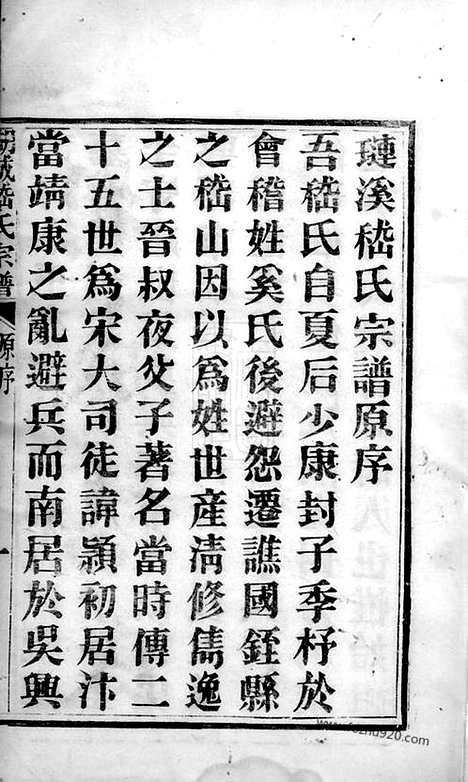 璉溪嵇氏宗譜原序
吾嵇氏自夏后少康封子季杼於
會稽姓奚氏後避怨遷譙國銍縣
之嵇山因以爲姓世產清修儁逸
之士晉叔夜父子著名當時傳二
十五世爲宋大司徒諱潁初居汴
當靖康之亂避兵而南居於吳興
城嵇氏宗譜
原序
一